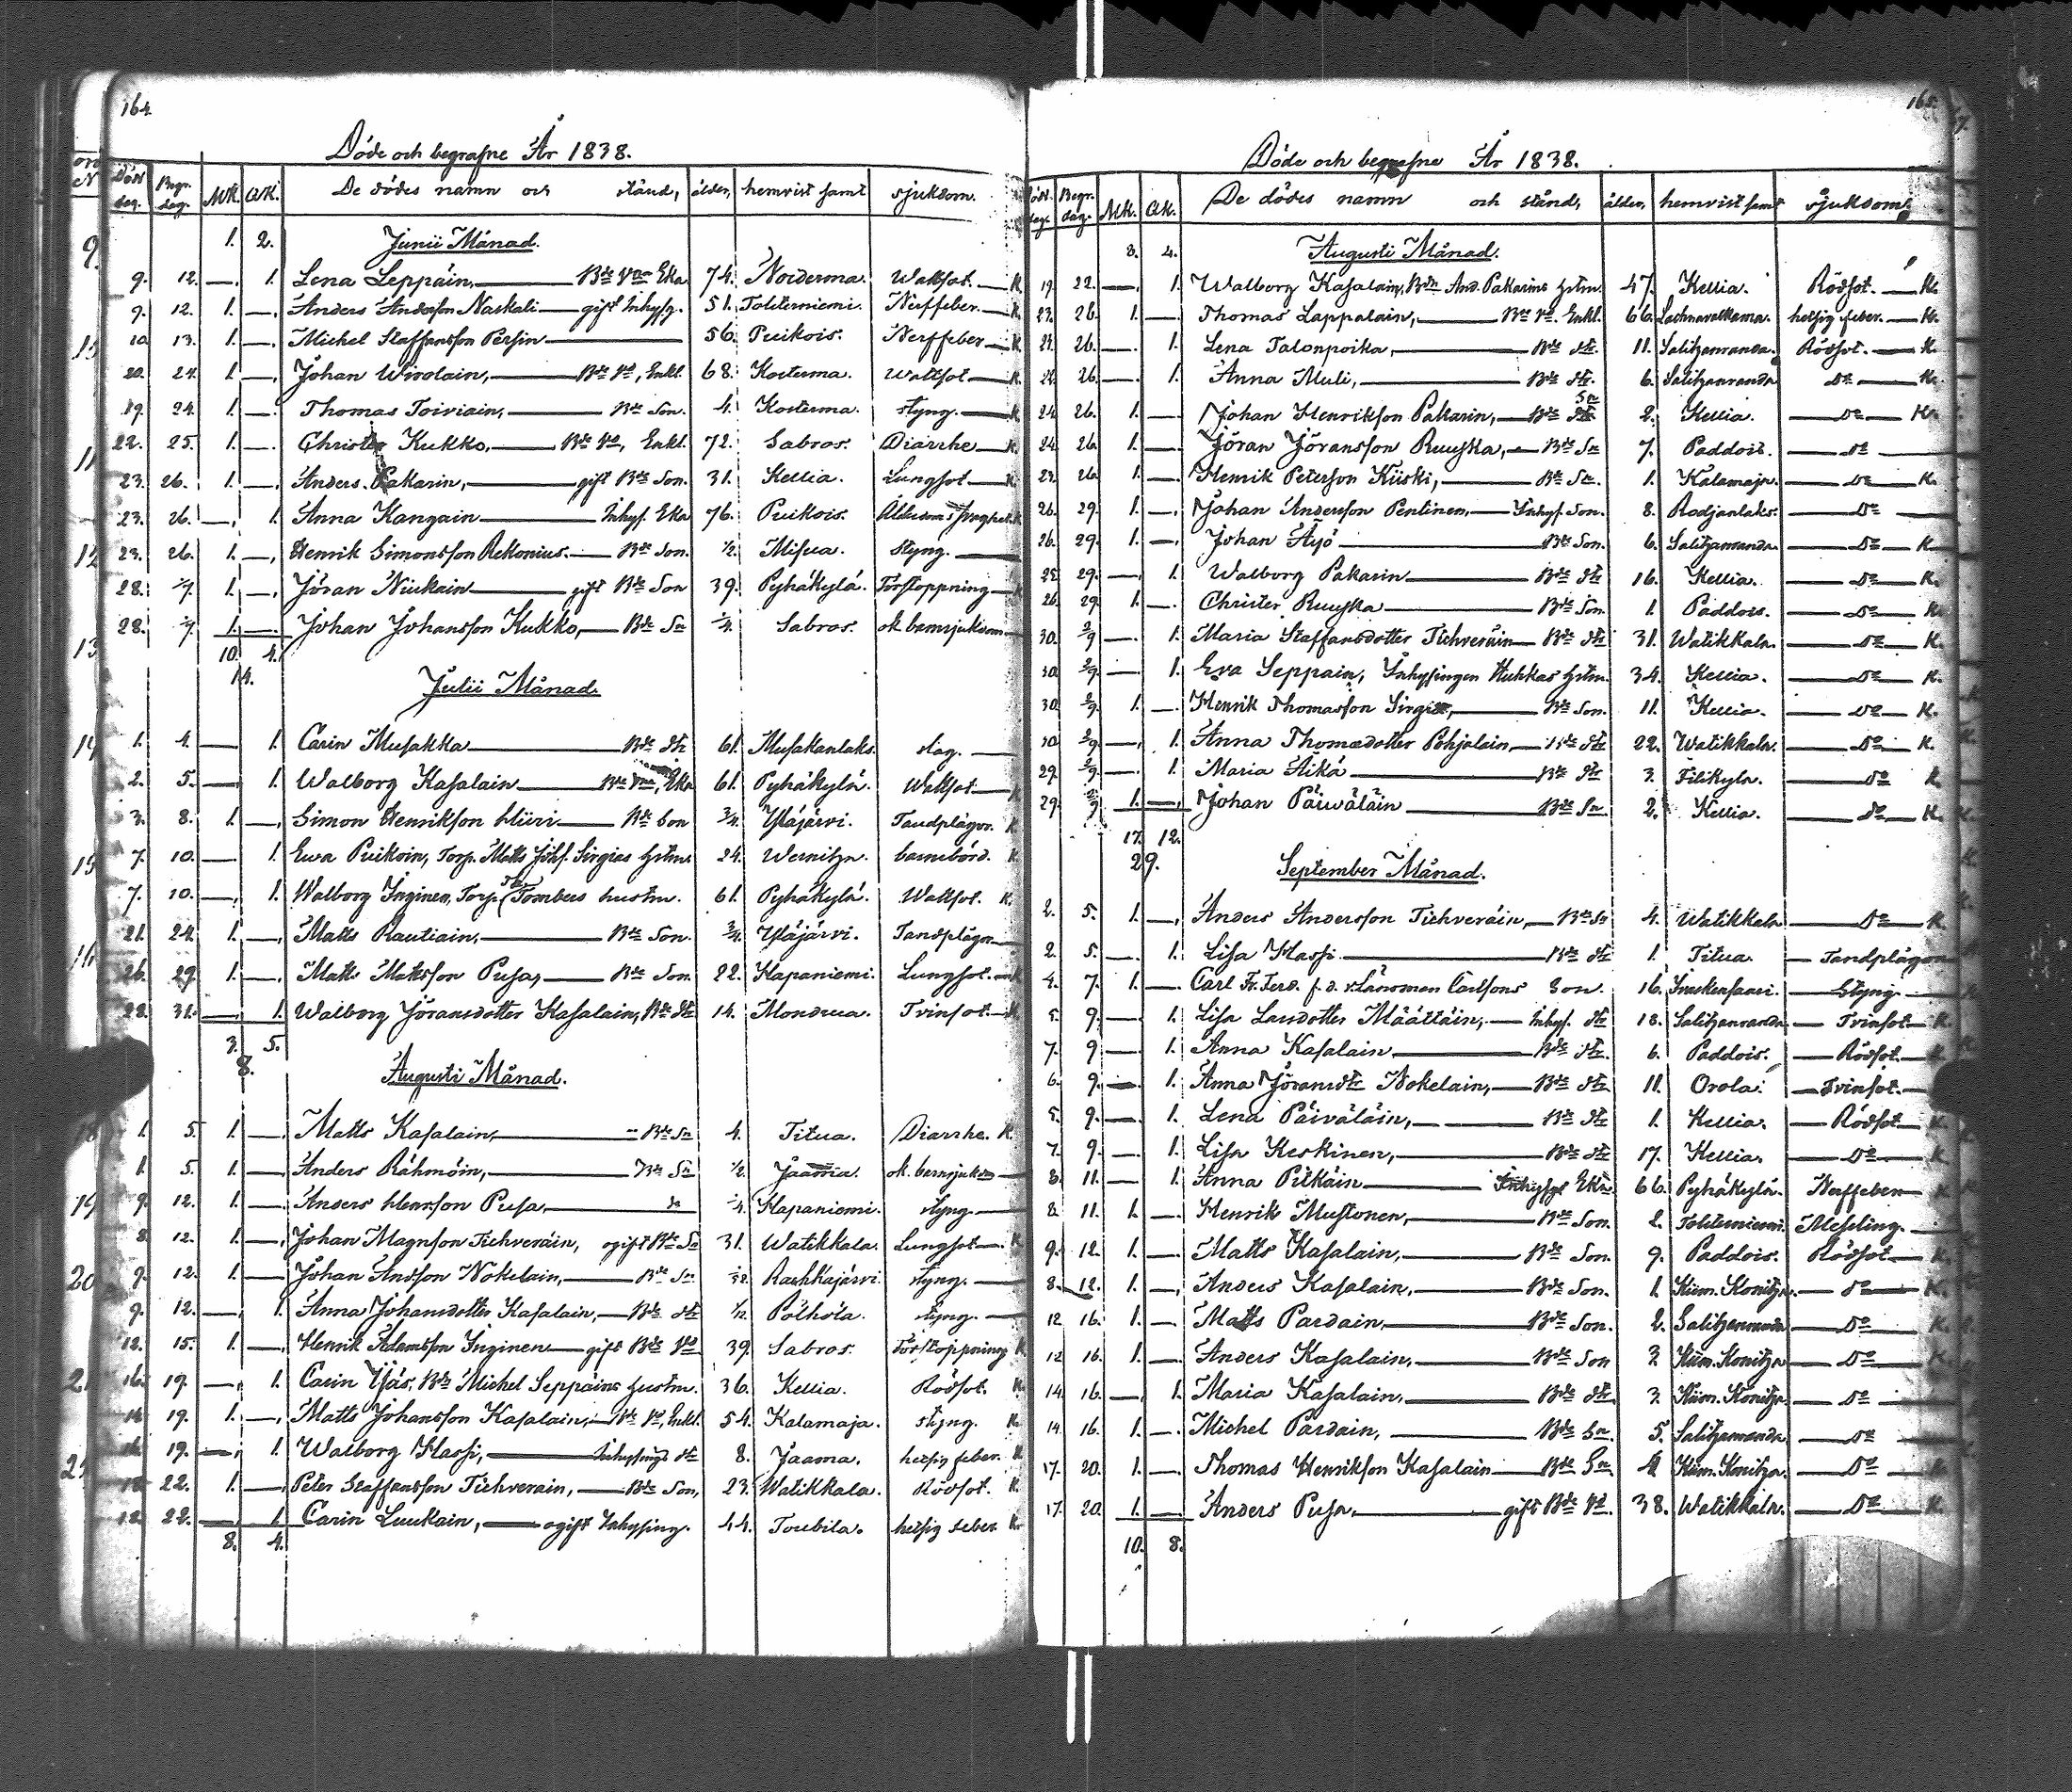 164.
Döde och begrafne År 1838.
Död. dag. Begr. dag. MK. QK. De dödes namn och stånd, ålder, hemvist samt sjukdom.
1. 2. Junii Månad.
9. 12. — 1. Lena Leppäin, Bde Enka 74. Noiderma. Wattsot. K
9. 12. 1. — Anders Andersson Naskali gift Inhysg. 51. Tolsterniemi. Nerffeber. K
10. 13. 1. — Michel Staffansson Persin 56. Puikois. Nerffeber K
20. 24. 1. — Johan Wirolain, Bde Vd, Enkl. 68. Kosterma. Wattsot K
19. 24. 1. — Thomas Toiviain, Bde Son. 4. Kosterma. styng. K
22. 25. 1. — Christer Kukko, Bde Vd, Enkl. 72. Sabros. Diarrhe K
23. 26. 1. — Anders Pakarin, gift Bde Son. 31. Kellia. Lungsot K
23. 26. — 1. Anna Kangain Inhys. Eka 76. Puikois. Ålderdoms svaghet K
23. 26. 1. — Henrik Simonsson Rekonius. Bde Son. 1/2. Misua. styng.
28. 1/7. 1. — Jöran Niukain gift Bde Son 39. Pyhäkylä. Förstoppning
28. 1. — Johan Johansson Kukko, Bde Sn Sabros. ok. barnsjukdom
10. 4.
14. Julii Månad.
1. 4. — 1. Carin Musakka Bde dtr 61. Musakanlaks. slag.
2. 5. — 1. Walborg Kasalain Enka 61. Pyhäkylä. Wattsot
3. 8. 1. — Simon Henriksson Miiri Bde Son 3/4. Yläjärvi. Tandplågor. K
7. 10. — 1. Ewa Puikoin, Torp. Matts Johs. Sirgias hstrus 24. Wernitza. barnsbörd. K.
7. 10. — 1. Walborg Inginen, Torp. Tombers hustru. 61. Pyhäkylä. Wattsot. K.
21. 24. 1. — Matts Rautiain, Bde Son. 3/4. Yläjärvi. Tandplågor
26. 29. 1. — Matts Mattsson Pusa, Bde Son. 22. Kapaniemi. Lungsot.
28. 31. — 1. Walborg Jöransdotter Kasalain, Bde dtr 14. Mondrua. Tvinsot.
3. 5.
8. Augusti Månad.
1. 5. 1. — Matts Kasalain, Bde Sn 4. Titua. Diarrhe. K.
1. 5. 1. — Anders Rähmöin, Bde Sn 1/2. Jaama. ok. barnsjukdom
9. 12. 1. — Anders Henrsson Pusa, Kapaniemi. styng
8. 12. 1. — Johan Magnsson Tichveräin, ogift Bde Sn 31. Watikkala. Lungsot K
9. 12. 1. — Johan Andsson Nokelain, Bde Sn Raskkajärvi. styng.
9. 12. — 1. Anna Johansdotter Kasalain, Bde dtr 1/2. Pölhölä. styng.
12. 15. 1. — Henrik Adamsson Inginen gift Bde Vd 39. Sabros. Förstoppning K
16. 19. — 1. Carin Äijäs, Bde Michel Seppäins hustru. 36. Kellia. Rödsot. K.
16 19. 1. — Matts Johansson Kasalain, Bde Vd, Enkl. 54. Kalamaja. styng. K.
16. 19. — 1. Walborg Hassi, Inhysings dtr 8. Jaama. hetsig feber. K
18 22. 1. — Peter Staffansson Tichverain, Bde Son, 23. Watikkala. Rödsot. K
18. 22. — 1. Carin Luukain, ogift Inhysing. 44. Toubila. hetsig feber K.
8. 4.
165.
Döde och begrafne År 1838.
Död. dag. Begr. dag. MK. QK. De dödes namn och stånd, ålder, hemvist samt sjukdom.
8. 4. Augusti Månad.
19. 22. — 1. Walborg Kasalain, Bdn And. Pakarins hstru. 47. Kellia. Rödsot. K.
23. 26. 1. — Thomas Lappalain, Bde Vd. Enkl. 66. Lachnavalkama. hetsig feber. K.
24. 26. — 1. Lena Talonpoika, Bde dtr. 11. Salitzanranda. Rödsot. K.
24. 26. — 1. Anna Muli, Bde dtr. 6. Salitzanranda Do K.
24. 26. 1. — Johan Henriksson Pakarin, Bde Sn 2. Kellia. Do K.
24. 26. 1. — Jöran Jöransson Ruuska, Bde Sn 7. Paddois. Do
23. 26. 1. — Henrik Petersson Kiiski, Bde Sn. 1. Kalamaja. Do K.
26. 29. 1. — Johan Andersson Pentinen, Inhys. Son. 8. Rodjanlaks. Do
26. 29. 1. — Johan Äyö Bde Son. 6. Salitzanranda. Do K
25. 29. — 1. Walborg Pakarin Bde dtr 16. Kellia. Do K.
26. 29. 1. — Christer Ruuska Bde Son. 1. Paddois. Do K
30. 2/9. — 1. Maria Staffansdotter Tichveräin Bde dtr 31. Watikkala. Do K.
30. 2/9. — 1. Eva Seppain, Inhysingen Huhkas hstru. 34. Kellia. Do K.
30. 2/9. 1. — Henrik Thomasson Sirgi Bde Son. 11. Kellia. Do K.
30 2/9. — 1. Anna Thomasdotter Pohjolain, Bde dtr 22. Watikkala. Do K.
29. 2/9. — 1. Maria Äikä Bde dtr 3. Filikylä. Do K
29. 2/9 1. — Johan Päiväläin Bde Sn. 2. Kellia. Do K.
17. 12.
29. September Månad.
2. 5. 1. — Anders Andersson Tichveräin, Bde Sn 4. Watikkala Do K
2. 5. — 1. Lisa Hassi Bde dtr 1. Titua. Tandplågor
4. 7. 1. — Carl Fr. Ferd. f. d. v. Länsman Carlssons Son. 16. Suskensaari. Styng.
5. 9. — 1. Lisa Larsdotter Määttäin, Inhys. dtr 18. Salitzanranda Tvinsot K.
7. 9 — 1. Anna Kasalain Bde dtr. 6. Paddois. Rödsot. K
6. 9. — 1. Anna Jöransdtr Nokelain, Bde dtr 11. Orola. Tvinsot.
5. 9. — 1. Lena Päiväläin, Bde dtr 1. Kellia. Rödsot K.
7. 9. — 1. Lisa Keskinen, Bde dtr 17. Kellia. Do K
8. 11. — 1. Anna Pitkäin Inhysgs Eka. 66. Pyhäkylä. Nerffeber K
8. 11. 1. — Henrik Mustonen, Bde Son. 2. Tolsterniemi. Messling.
9. 12. 1. — Matts Kasalain, Bde Son. 9. Paddois. Rödsot K.
8. 12. 1. — Anders Kasalain, Bde Son. 1. Kiim. Konitza. Do K.
12 16. 1. — Matts Pardain, Bde Son. 2. Salitzanranda Do K.
12 16. 1. — Anders Kasalain, Bde Son 3. Kiim. Konitza Do K
14 16. — 1. Maria Kasalain, Bde dtr 3. Kiim. Konitza. Do
14. 16. 1. — Michel Pardain, Bde Sn. 5. Salitzanranda Do
17. 20. 1. — Thomas Henriksson Kasalain Bde Sn 4 Kiim. Konitza. Do K
17. 20. 1. — Anders Pusa, gift Bde Vd. 38. Watikkala. Do K.
10. 8.